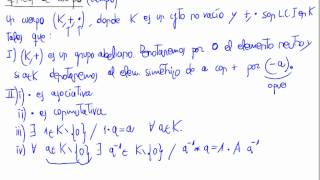 Un cuerpo (K,+,·), donde K es un cjto no vacío y +,· son L.C.I en K
tales que:
I) (K,+) es un grupo abeliano. Denotaremos por 0 el elemento neutro y
si a∈K denotaremos al elem. simétrico de a con + por (-a)
opuesto
II) i) · es asociativa
ii) · es conmutativa
iii) ∃ 1∈K\{0} / 1·a=a ∀a∈K.
iv) ∀ a∈K\{0} ∃ a⁻¹∈K\{0} / a⁻¹·a=1